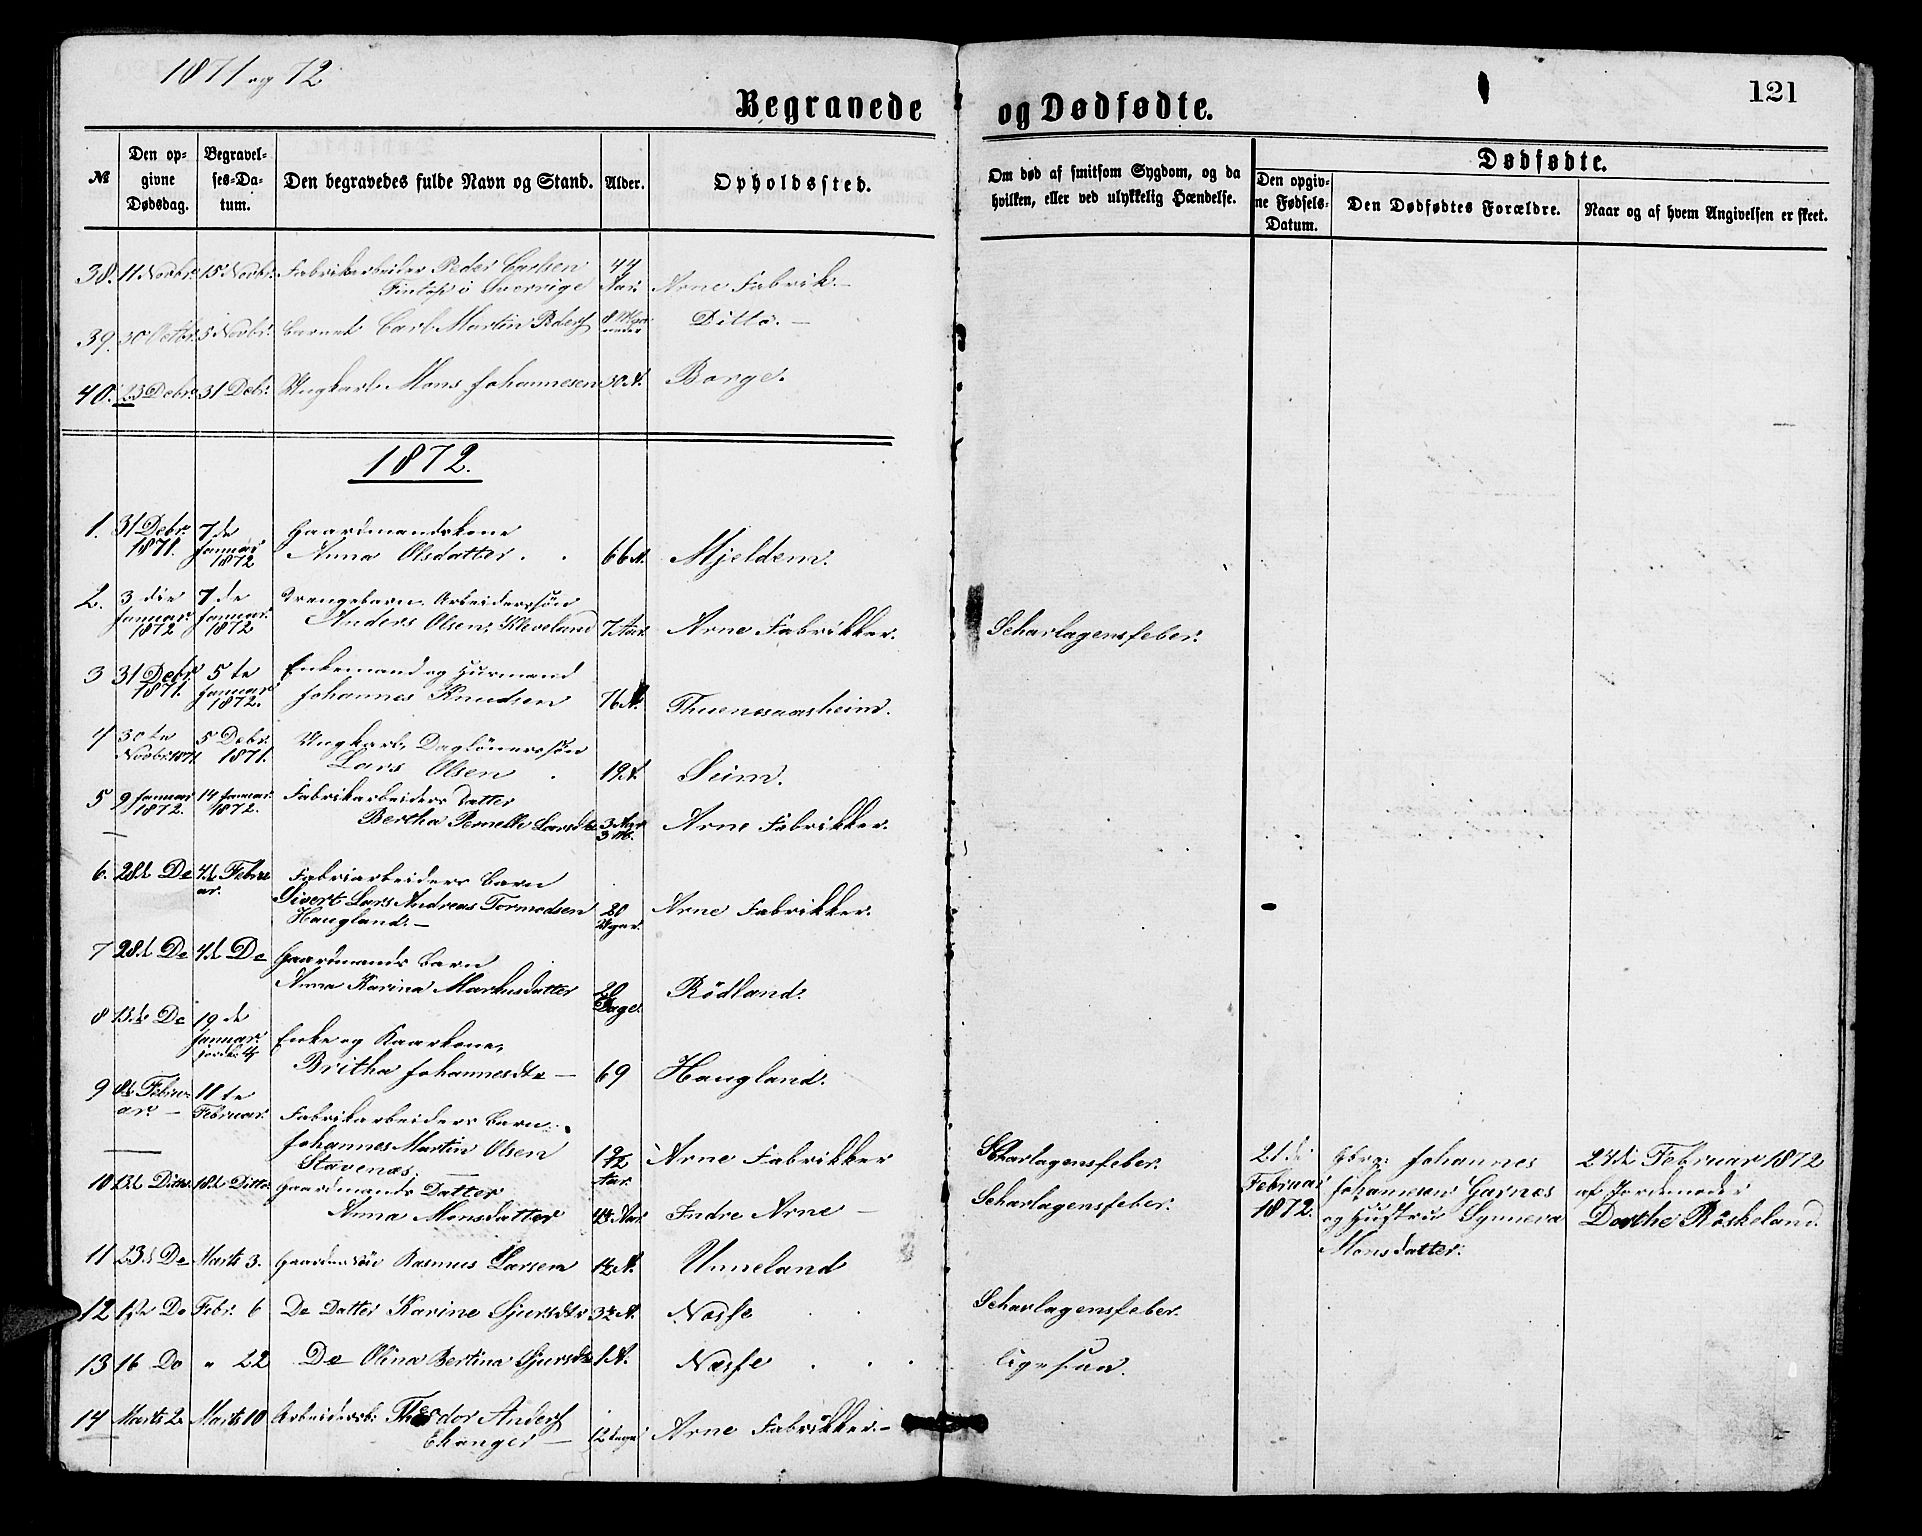 1871 og 72
Begravede og Dødfødte.
121
№
Den opgivne Dødsdag.
Begravelses-Datum.
Den begravedes fulde Navn og Stand.
Alder.
Opholdssted.
Om død af smitsom Sygdom, og da hvilken, eller ved ulykkelig Hændelse.
Dødfødte.
Den opgivne Fødsels-Datum.
Den Dødfødtes Forældre.
Naar og af hvem Angivelsen er skeet.
38. 11 Novbr. 15 Novbr. Fabrikarbeider Peder Carlsen 44 Aar. Arne Fabrik.
i Sverrige
39. 30 Octbr. 5 Novbr. Barnet Carl Martin Peders 8 Ditto.
40. 23 Debr. 31 Debr. Ungkarl Mons Johannesen 30 A. Borge.
1872.
1. 31 Debr. 1871. 7de Januar 1872 Gaardmandskone
Anna Olsdatter. 66 A. Mjeldem.
2. 3die Januar 1872 7de Januar 1872 Drengebarn, Arbeiderssøn
Anders Olsen Kleveland 7 Aar Arne Fabrikker. Scharlagensfeber.
3 31 Debr. 1871. 5te Januar 1872. Enkemand og Huusmand
Johannes Knudsen 76 A. Thuenesaasheim.
4 30te Novbr. 1871 5 Debr. 1871. Ungkarl, Daglönerssøn
Lars Olsen 19 A. Seim.
5 9 Januar 1872. 14 Januar 1872. Fabrikarbeiders Datter
Bertha Pernelle Larsdtr 3 Aar 3 M. Arne Fabrikker.
6. 28d De 4d Februar. Fabriarbeiders Barn
Sivert Lars Andreas Tormodsen
Haugland. 20 Uger. Arne Fabrikker.
7 28d De 4d De Gaardmands Barn
Anna Karina Markusdatter 20 Dage. Rödland.
8 13de De 19de Januar. Enke og Kaarkone,
Britha Johannesdtr 69 Haugland.
9 8d Februar. 11te Februar. Fabrikarbeiders Barn
Johannes Martin Olsen
Stavenæs. 1 9/12 Aar. Arne Fabrikker Scharlagensfeber.
10 13d Ditto. 18d Ditto Gaardmands Datter
Anna Monsdatter Aar. Indre Arne Scharlagensfeber.
11 23d De Marts 3. Gaardmssön Rasmus Larsen A. Unneland
12 Do Febr. 6 De Datter Karine Sjursdtr A. Næsse Scharlagensfeber.
13 16 Do " 22 De Olina Bertina Sjursdtr 1 A. Næsse ligesaa.
14 Marts 2 Marts 10 Arbeidersb. Theodor Anders
Ekanger 12 Dage Arne Fabrikker.
21de Februar 1872.
Johannes
Johannesen Garnes
og Hustru Synneva
Monsdatter.
Februar 1872
af Jordemoder
Dorthe Röskeland.